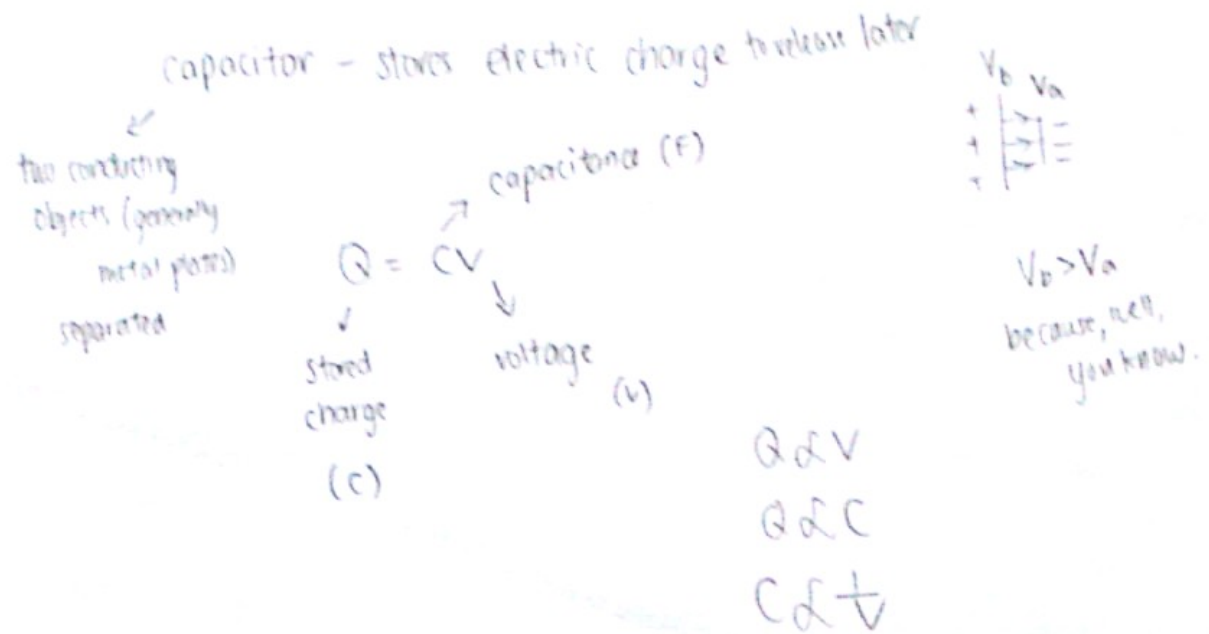 capacitor - stores electric charge to release later
two conducting
objects (generally
metal plates)
separated
capacitance (F)
Q = CV
stored
charge
(C)
voltage
(V)
Vb Va
+
+
+
Vb > Va
because, well,
you know.
Q ∝ V
Q ∝ C
C ∝ 1/V